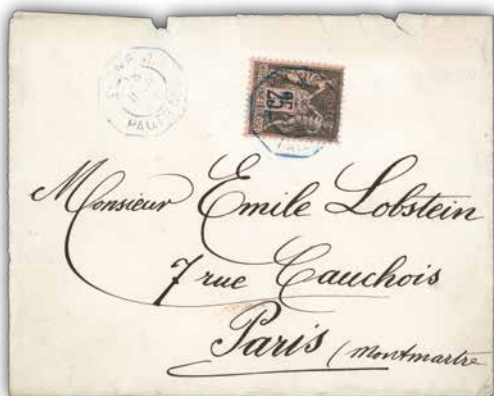 25
Monsieur Emile Lobstein
7 rue Cauchois
Paris (Montmartre